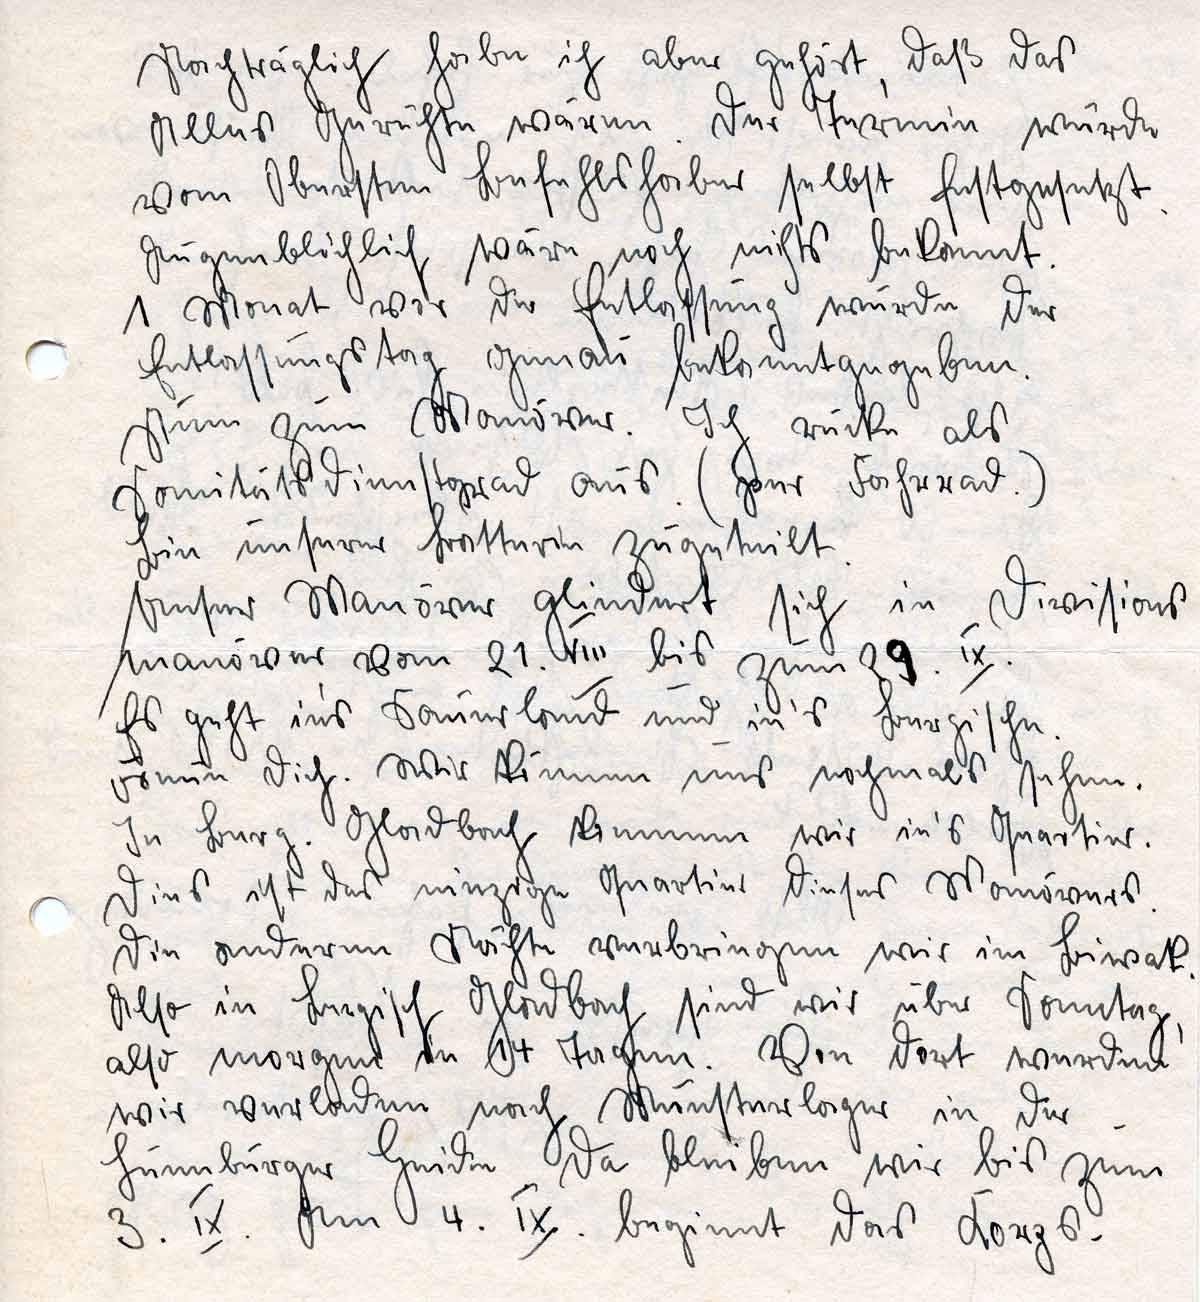 Nachträglich habe ich aber gehört, daß das
Alles Gerüchte wären. Der Termin würde
vom Obersten Befehlshaber selbst festgesetzt.
Augenblicklich wäre noch nichts bekannt.
1 Monat vor der Entlassung würde der
Entlassungstag genau bekanntgegeben.
Nun zum Manöver. Ich rücke als
Sanitätsdienstgrad aus. (per Fahrrad.)
Bin unserer Batterie zugeteilt.
Unser Manöver gliedert sich in Divisions
manöver vom 21. VIII bis zum 29. IX.
Es geht in's Sauerland und in's Bergische.
Freue Dich. Wir können uns nochmals sehen.
In Berg. Gladbach kommen wir in's Quartier.
Dies ist das einzige Quartier dieses Manövers.
Die anderen Nächte verbringen wir im Biwak.
Also in Bergisch Gladbach sind wir über Sonntag,
also morgen in 14 Tagen. Von dort werden
wir verladen nach Munsterlager in der
Lüneburger Heide. Da bleiben wir bis zum
3. IX. Am 4. IX. beginnt das Korps-